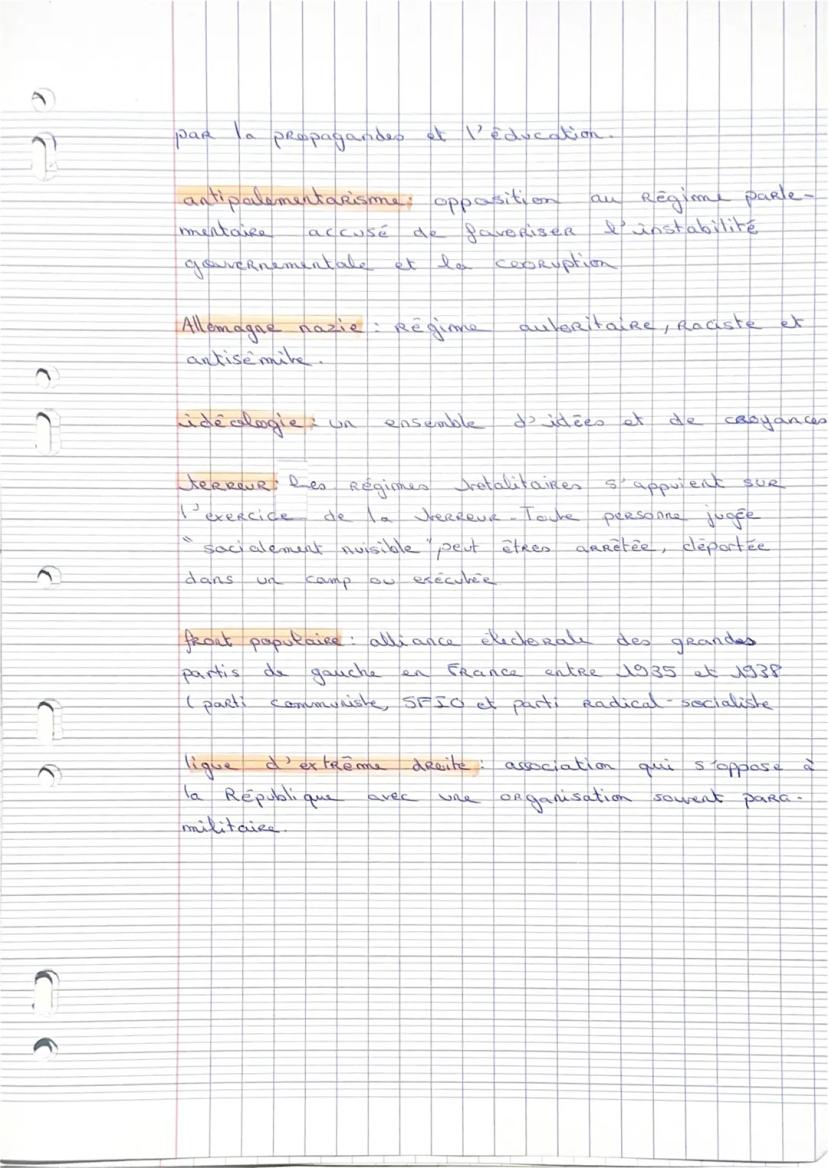 par la propagandes et l'éducation.
antipalementarisme : opposition au Régime parle-
mentaire accusé de favoriser l'instabilité
gouvernementale et la cooruption
Allemagne nazie : Régime autoritaire, Raciste et
antisémite.
idécologie : un ensemble d'idées et de croyances
terreur : Les Régimes totalitaires s'appuient sur
l'exercice de la terreur. Toute personne jugée
"socialement nuisible" peut êtres arrêtée, déportée
dans un camp ou exécutée
front populaire : alliance électorale des grandes
partis de gauche en France entre 1935 et 1938
( parti communiste, SFIO et parti Radical-socialiste
ligue d'extrême droite : association qui s'oppose à
la République avec une organisation souvent para-
militaire.